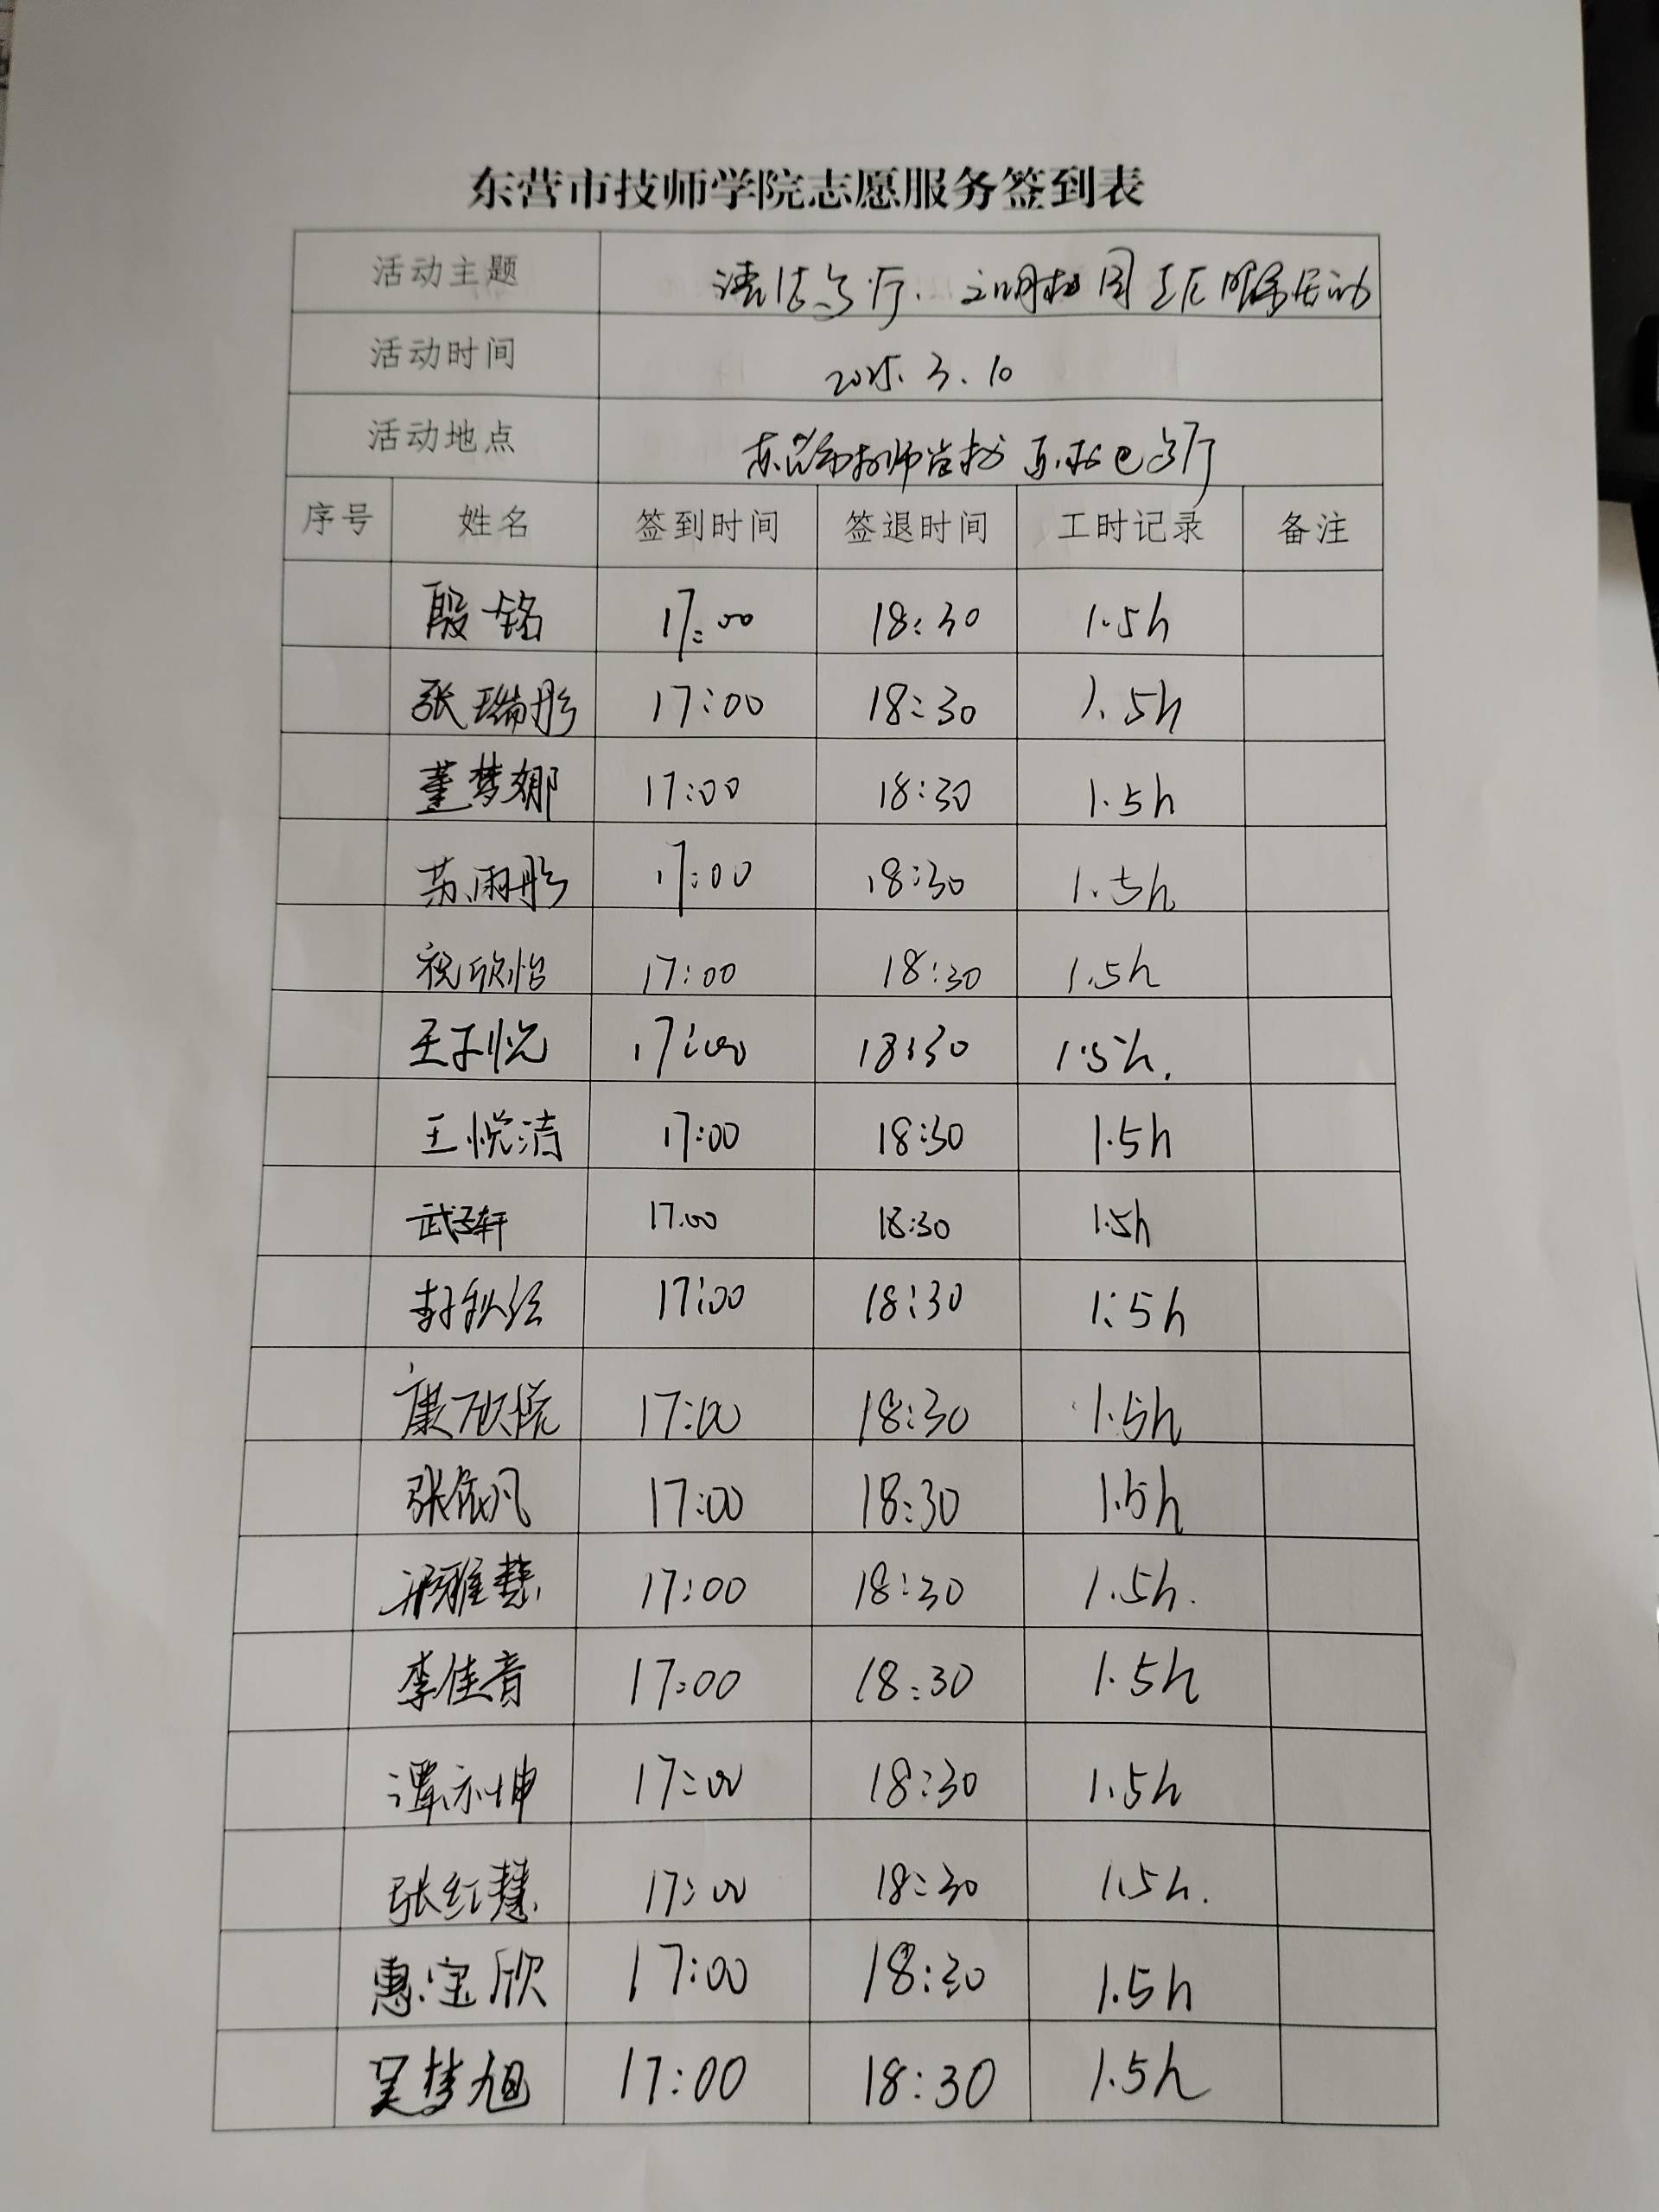 东营市技师学院志愿服务签到表
活动主题 清洁餐厅、文明校园志愿服务活动
活动时间 2025.3.10
活动地点 东营市技师学校东校区餐厅
序号 姓名 签到时间 签退时间 工时记录 备注
殷铭 17:00 18:30 1.5h
张瑞彤 17:00 18:30 1.5h
董梦娜 17:00 18:30 1.5h
苏雨彤 17:00 18:30 1.5h
祝欣怡 17:00 18:30 1.5h
王子悦 17:00 18:30 1.5h
王悦清 17:00 18:30 1.5h
武子轩 17:00 18:30 1.5h
17:00 18:30 1.5h
康欣悦 17:00 18:30 1.5h
张依凡 17:00 18:30 1.5h
雅慧 17:00 18:30 1.5h
李佳音 17:00 18:30 1.5h
谭 坤 17:00 18:30 1.5h
张红慧 17:00 18:30 1.5h
惠宝欣 17:00 18:30 1.5h
吴梦旭 17:00 18:30 1.5h